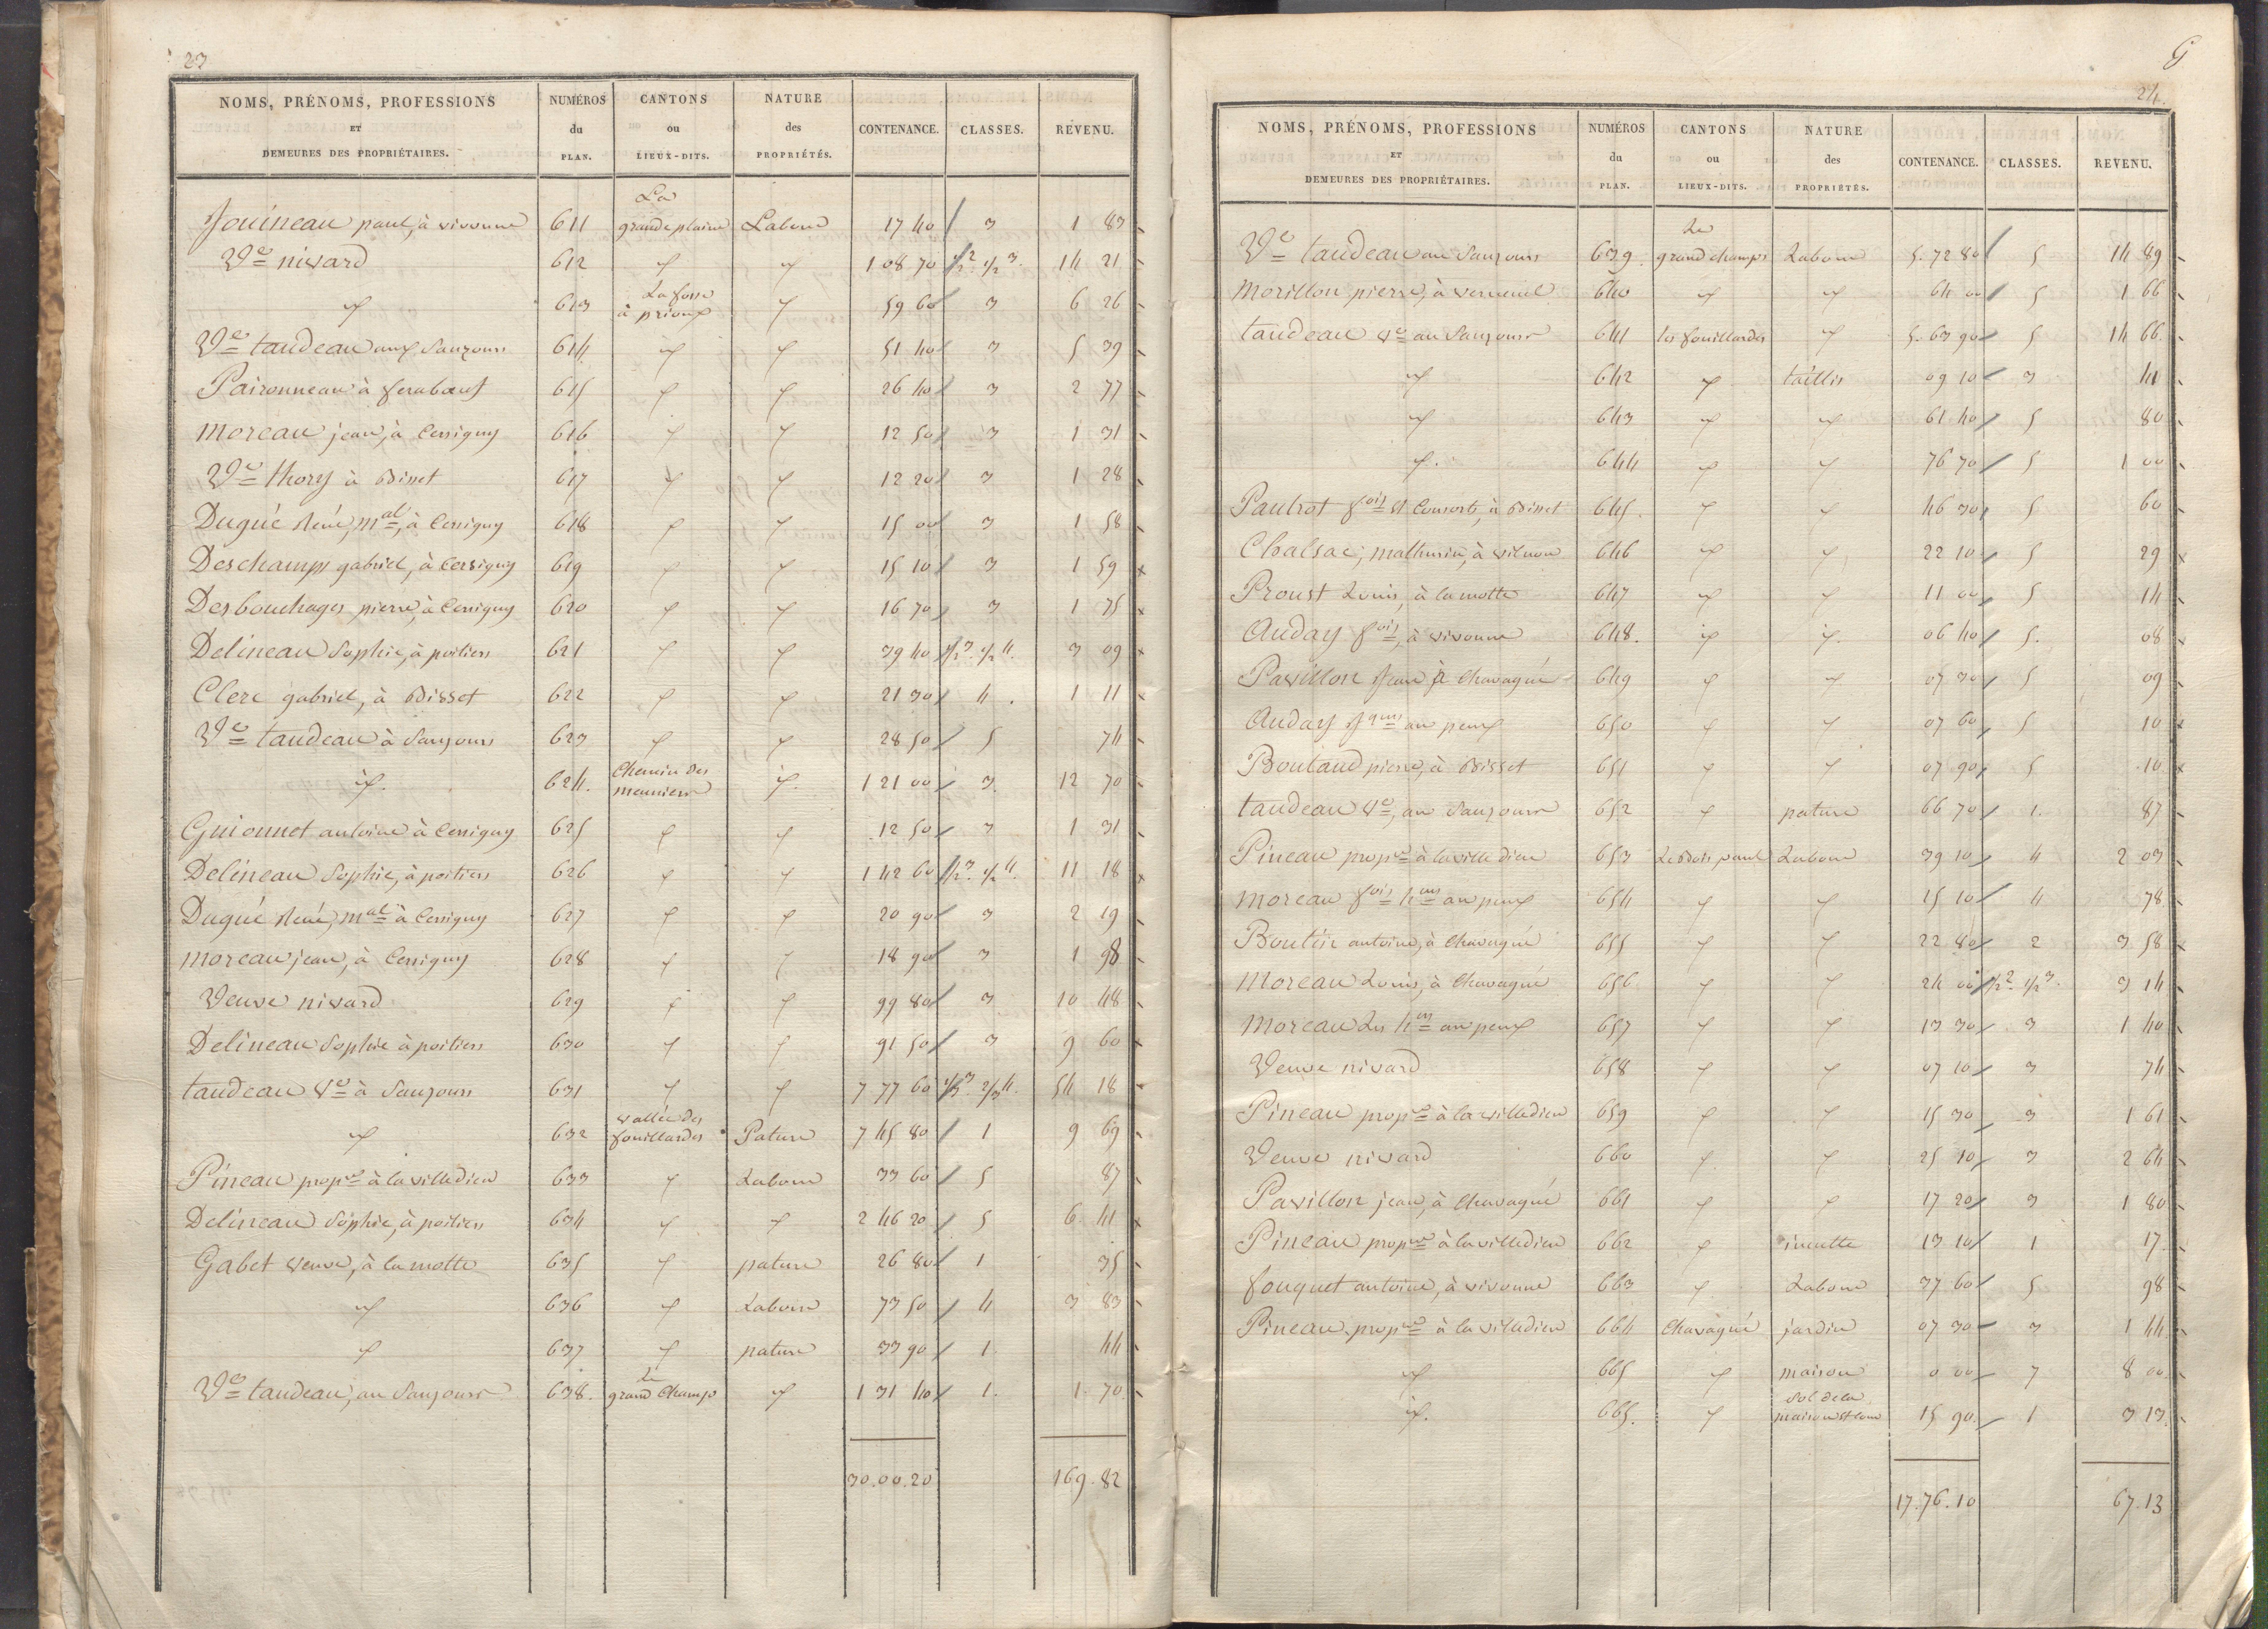 23
NOMS, PRÉNOMS, PROFESSIONS ET DEMEURES DES PROPRIÉTAIRES. | NUMÉROS du PLAN. | CANTONS ou LIEUX-DITS. | NATURE des PROPRIÉTÉS. | CONTENANCE. | CLASSES. | REVENU.
Jouineau paul, à vivonne 611 La grande plaine Labour 17 40 3 1 83
Ve nivard 612 id id 1 08 70 1/2 2. 1/2 3. 14 21
id 613 La fosse à prioux id 59 60 3 6 26
Ve taudeau aux Sauzours 614 id id 51 40 3 5 39
Paironneau à ferabœuf 615 id id 26 40 3 2 77
moreau jean, à Cersigny 616 id id 12 50 3 1 31
Ve thory à Bisset 617 id id 12 20 3 1 28
Dugué René, mal, à Cersigny 618 id id 15 00 3 1 58
Deschamps gabriel, à Cersigny 619 id id 15 10 3 1 59
Desbouchages pierre, à Cersigny 620 id id 16 70 3 1 75
Delineau Sophie, à poitiers 621 id id 39 40 1/2 3. 1/2 4. 3 09
Clerc gabriel, à Bisset 622 id id 21 30 4. 1 11
Ve taudeau à Sauzours 623 id id 28 50 5 74
id. 624. Chemin des meuniers id. 1 21 00 3. 12 70
Guionnet antoine à Cersigny 625 id id 12 50 3 1 31
Delineau Sophie, à poitiers 626 id id 1 42 60 1/2 3. 1/2 4. 11 18
Dugué René, mal à Cersigny 627 id id 20 90 3 2 19
moreau jean, à Cersigny 628 id id 18 90 3 1 98
Veuve nivard 629 id id 99 80 3 10 48
Delineau Sophie à poitiers 630 id id 91 50 3 9 60
taudeau Ve à Sauzours 631 id id 7 77 60 1/3 3. 2/3 4. 54 18
id 632 vallée des fouillardes Pature 7 45 80 1 9 69
Pineau propre à la villedieu 633 id Labour 33 60 5 87
Delineau Sophie, à poitiers 634 id id 2 46 20 5 6 41
Gabet veuve, à la motte 635 id pature 26 80 1 35
id 636 id Labour 73 50 4 3 83
id 637 id pature 33 90 1. 44
Ve taudeau, au Sauzours 638. le grand Champs id 1 31 40 1. 1. 70
30.00.20 169.82
G
24.
NOMS, PRÉNOMS, PROFESSIONS ET DEMEURES DES PROPRIÉTAIRES. | NUMÉROS du PLAN. | CANTONS ou LIEUX-DITS. | NATURE des PROPRIÉTÉS. | CONTENANCE. | CLASSES. | REVENU.
Ve taudeau au Sauzours 639. Le grand champs Labour 5. 72 80 5 14 89
morillon pierre, à verneuil 640 id id 64 00 5 1 66
taudeau Ve au Sauzours 641 les fouillardes id 5. 63 90 5 14 66.
id 642 id taillis 09 10 3 41
id 643 id id 61 40 5 80
id. 644 id id 76 70 5 1 00
Paulrot fois et Consorts, à Bisset 645. id id 46 30 5 60
Chalsac, mathurin, à vilnon 646 id id 22 10 5 29
Proust Louis, à la motte 647 id id 11 00 5 14
Auday fois, à vivonne 648. id id. 06 40 5. 08
Pavillon Jean à Chavagné 649 id id 07 30 5 09
Auday Jques au peux 650 id id 07 60 5 10
Boutaud pierre, à Bisset 651 id id 07 90 5 10
taudeau Ve, au Sauzours 652 id pature 66 70 1. 87
Pineau propre à la ville dieu 653 Le Bois paul Labour 39 10 4 2 03
moreau fois hers au peux 654 id id 15 10 4 78
Boutin antoine, à Chavagné 655 id id 22 80 2 3 58
Moreau Louis, à Chavagné 656 id id 24 00 1/2 2. 1/2 3. 3 14
moreau Les hers au peux 657 id id 13 30 3 1 40
Veuve nivard 658 id id 07 10 3 74
Pineau propre à la villedieu 659 id id 15 30 3 1 61
Veuve nivard 660 id id 25 10 3 2 64
Pavillon jean, à Chavagné 661 id id 17 20 3 1 80
Pineau propre à la villedieu 662 id inculte 13 10 1 17
fouquet antoine, à vivonne 663 id Labour 37 60 5 98
Pineau propre à la villedieu 664 Chavagné jardin 07 30 3 1 44
id 665 id maison 0 00 7 8 00
id. 665. id Sol de la maison et cour 15 90 1 3 13.
17.76.10 67.13